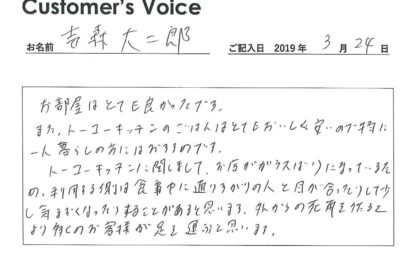 Customer's Voice
お名前 吉森 大二郎 ご記入日 2019年 3月 24日
お部屋はとても良かったです。
また、トーコーキッチンのごはんはとてもおいしく安いので特に
一人暮らしの方にはおすすめです。
トーコーキッチンに関しまして、お店がガラスばりになっているた
め、利用する側は食事中に通りがかりの人と目が合ったりして少
し気まずくなったりすることがあると思います。外からの死角を作ると
より多くのお客様が足を運ぶと思います。